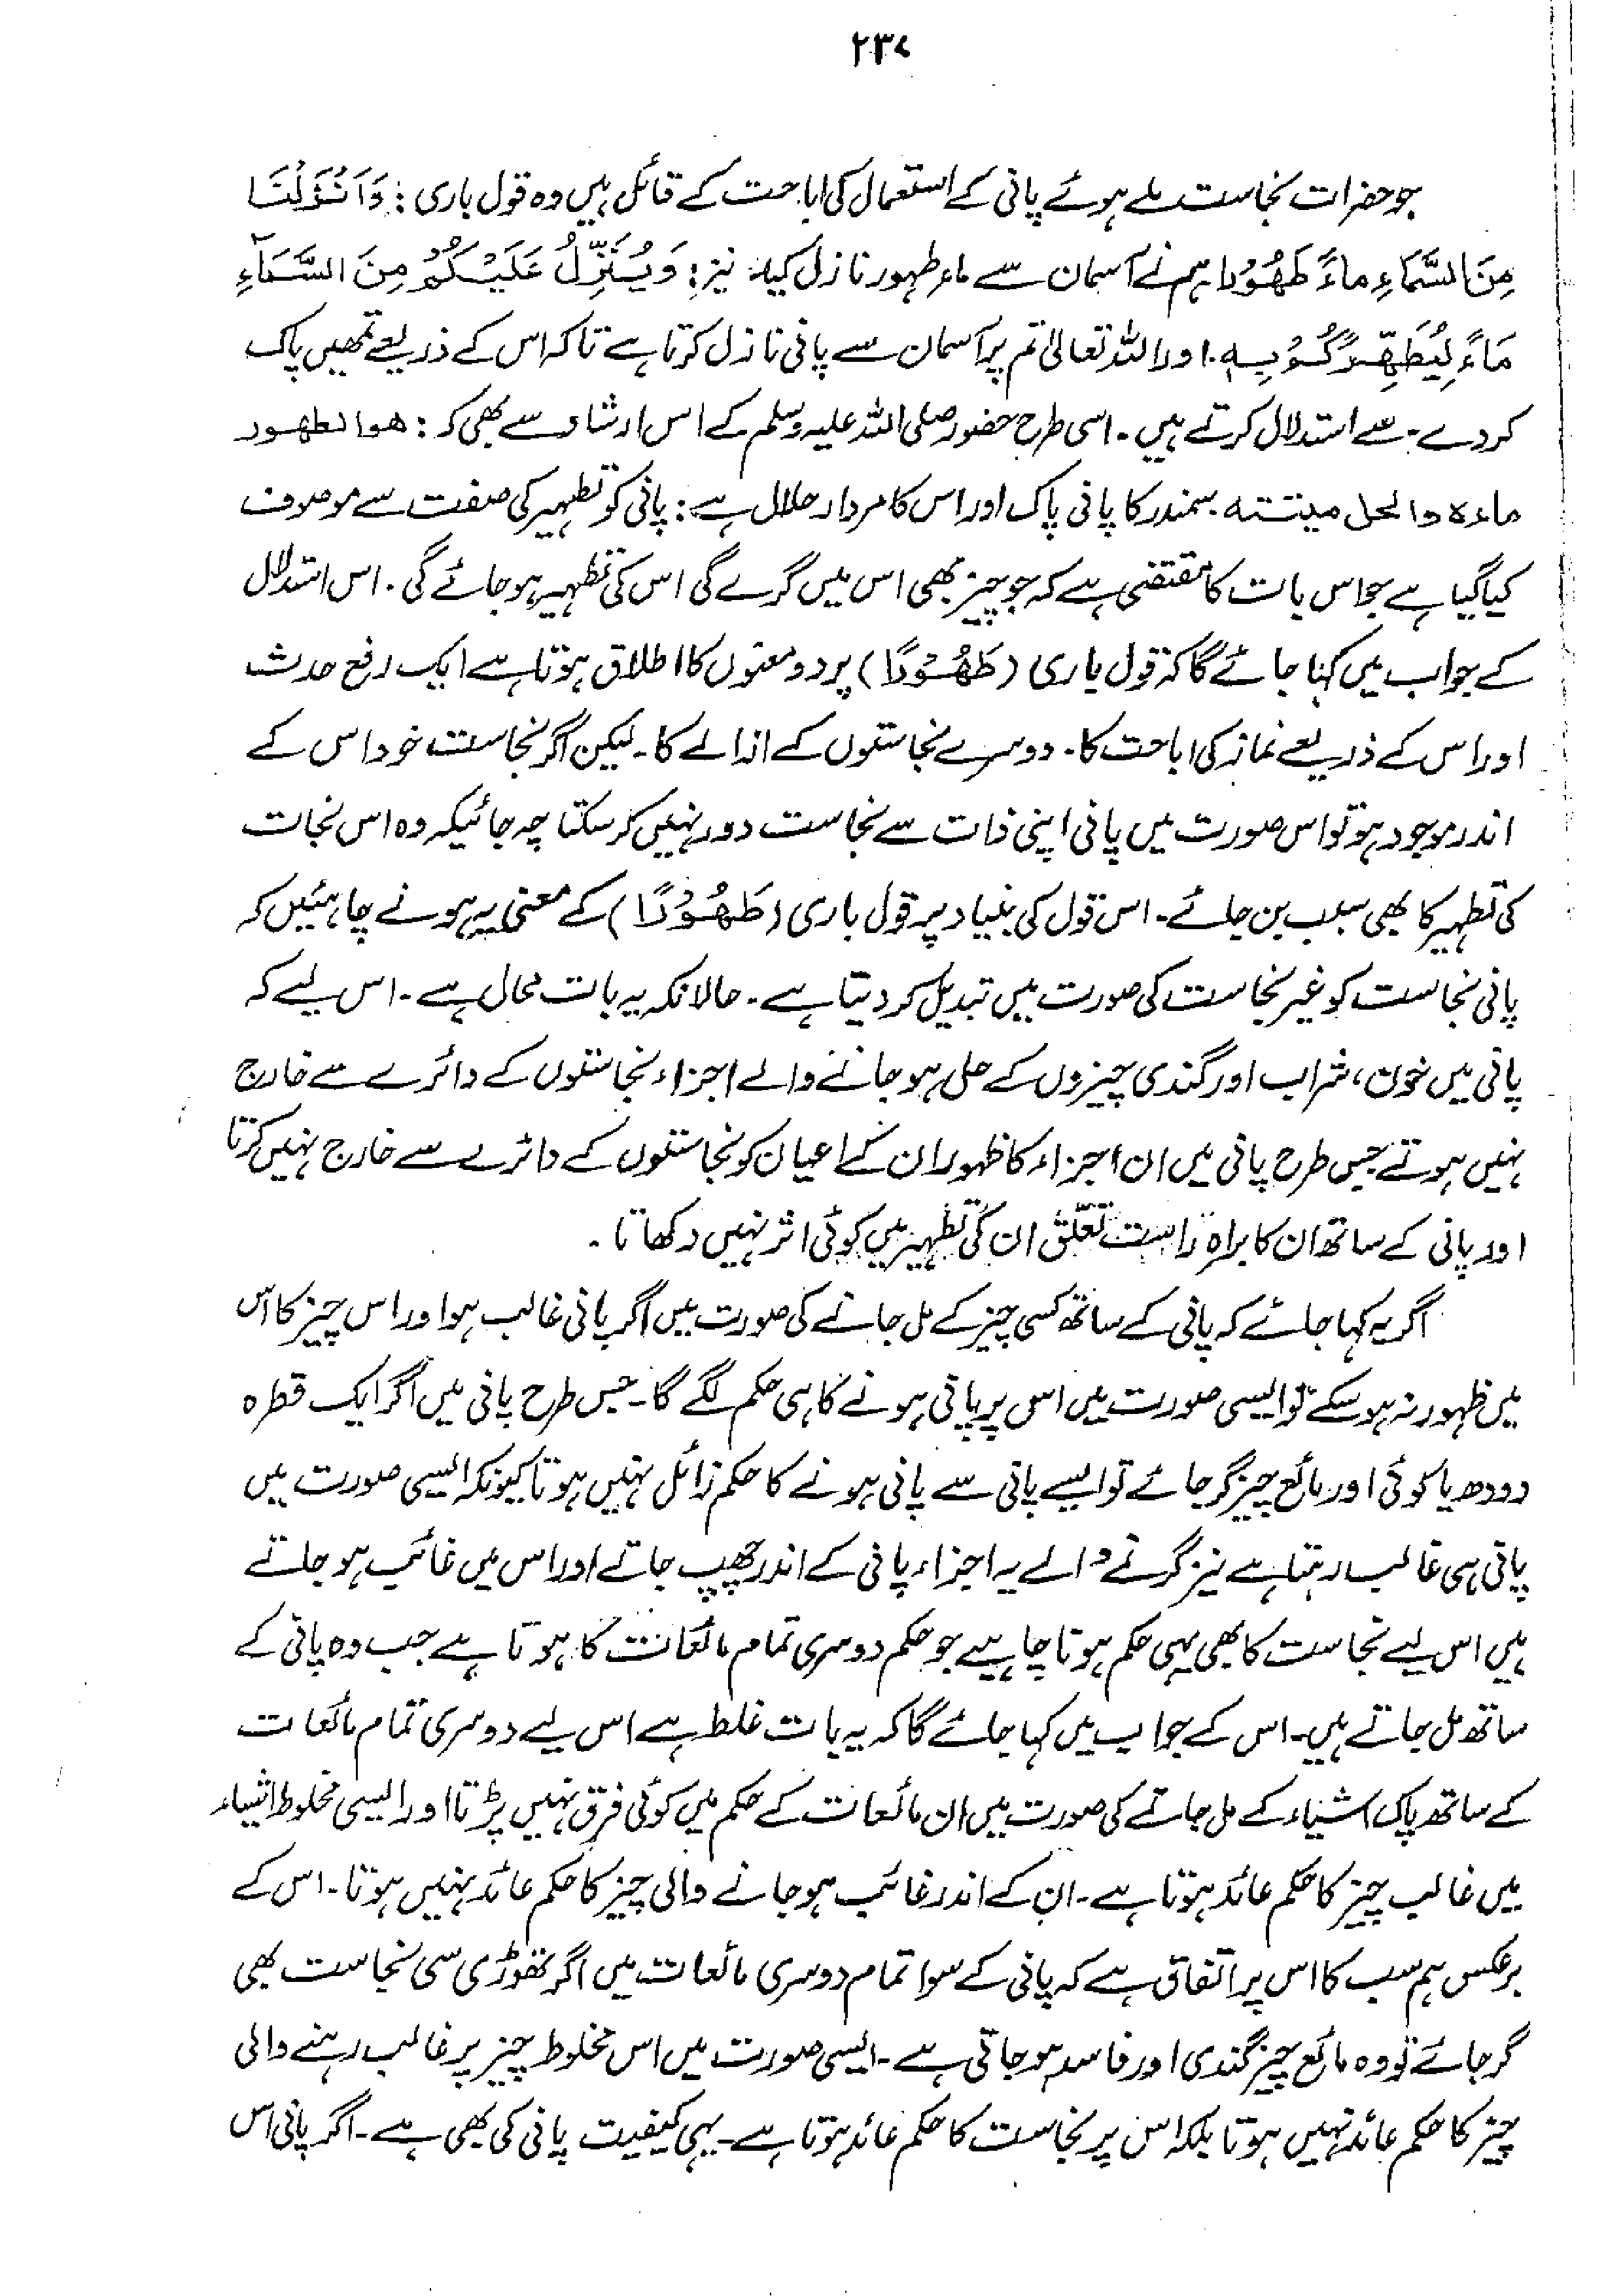 ۲۳۷
جو حضرات نجاست ملے ہوئے پانی کے استعمال کی اباحت کے قائل ہیں وہ قول باری: وَاَنْزَلْنَا
مِنَ السَّمَاءِ مَاءً طَهُوْرًا ہم نے آسمان سے ماء طہور نازل کیا۔ نیز: وَيُنَزِّلُ عَلَيْكُمْ مِنَ السَّمَآءِ
مَاءً لِيُطَهِّرَكُمْ بِهٖ۔ اور اللہ تعالیٰ تم پر آسمان سے پانی نازل کرتا ہے تاکہ اس کے ذریعے تمھیں پاک
کر دے۔ سے استدلال کرتے ہیں۔ اسی طرح حضور صلی اللہ علیہ وسلم کے اس ارشاد سے بھی کہ: هو الطهور
ماءه والحل ميتته سمندر کا پانی پاک اور اس کا مردار حلال ہے: پانی کو تطہیر کی صفت سے موصوف
کیا گیا ہے جو اس بات کا مقتضی ہے کہ جو چیز بھی اس میں گرے گی اس کی تطہیر ہو جائے گی۔ اس استدلال
کے جواب میں کہا جائے گا کہ قول باری (طَهُوْرًا) پر دو معنوں کا اطلاق ہوتا ہے ایک رفع حدث
اور اس کے ذریعے نماز کی اباحت کا۔ دوسرے نجاستوں کے ازالے کا۔ لیکن اگر نجاست خود اس کے
اندر موجود ہو تو اس صورت میں پانی اپنی ذات سے نجاست دور نہیں کر سکتا چہ جائیکہ وہ اس نجات
کی تطہیر کا بھی سبب بن جائے۔ اس قول کی بنیاد پر قول باری (طَهُوْرًا) کے معنی یہ ہونے چاہئیں کہ
پانی نجاست کو غیر نجاست کی صورت میں تبدیل کر دیتا ہے۔ حالانکہ یہ بات محال ہے۔ اس لیے کہ
پانی میں خون، شراب اور گندی چیزوں کے حل ہو جانے والے اجزاء نجاستوں کے دائرے سے خارج
نہیں ہوتے جس طرح پانی میں ان اجزاء کا ظہور ان کے اعیان کو نجاستوں کے دائرے سے خارج نہیں کرتا
اور پانی کے ساتھ ان کا براہ راست تعلّق ان کی تطہیر میں کوئی اثر نہیں دکھاتا۔
اگر یہ کہا جائے کہ پانی کے ساتھ کسی چیز کے مل جانے کی صورت میں اگر پانی غالب ہو اور اس چیز کا اس
میں ظہور نہ ہو سکے تو ایسی صورت میں اس پر پانی ہونے کا ہی حکم لگے گا۔ جس طرح پانی میں اگر ایک قطرہ
دودھ یا کوئی اور مائع چیز گر جائے تو ایسے پانی سے پانی ہونے کا حکم زائل نہیں ہوتا کیونکہ ایسی صورت میں
پانی ہی غالب رہتا ہے نیز گرنے والے یہ اجزاء پانی کے اندر چھپ جاتے اور اس میں غائب ہو جاتے
ہیں اس لیے نجاست کا بھی یہی حکم ہونا چاہیے جو حکم دوسری تمام مائعات کا ہوتا ہے جب وہ پانی کے
ساتھ مل جاتے ہیں۔ اس کے جواب میں کہا جائے گا کہ یہ بات غلط ہے اس لیے دوسری تمام مائعات
کے ساتھ پاک اشیاء کے مل جانے کی صورت میں ان مائعات کے حکم میں کوئی فرق نہیں پڑتا اور ایسی مخلوط اشیاء
میں غالب چیز کا حکم عائد ہوتا ہے۔ ان کے اندر غائب ہو جانے والی چیز کا حکم عائد نہیں ہوتا۔ اس کے
برعکس ہم سب کا اس پر اتفاق ہے کہ پانی کے سوا تمام دوسری مائعات میں اگر تھوڑی سی نجاست بھی
گر جائے تو وہ مائع چیز گندی اور فاسد ہو جاتی ہے۔ ایسی صورت میں اس مخلوط چیز پر غالب رہنے والی
چیز کا حکم عائد نہیں ہوتا بلکہ اس پر نجاست کا حکم عائد ہوتا ہے۔ یہی کیفیت پانی کی بھی ہے۔ اگر پانی اس